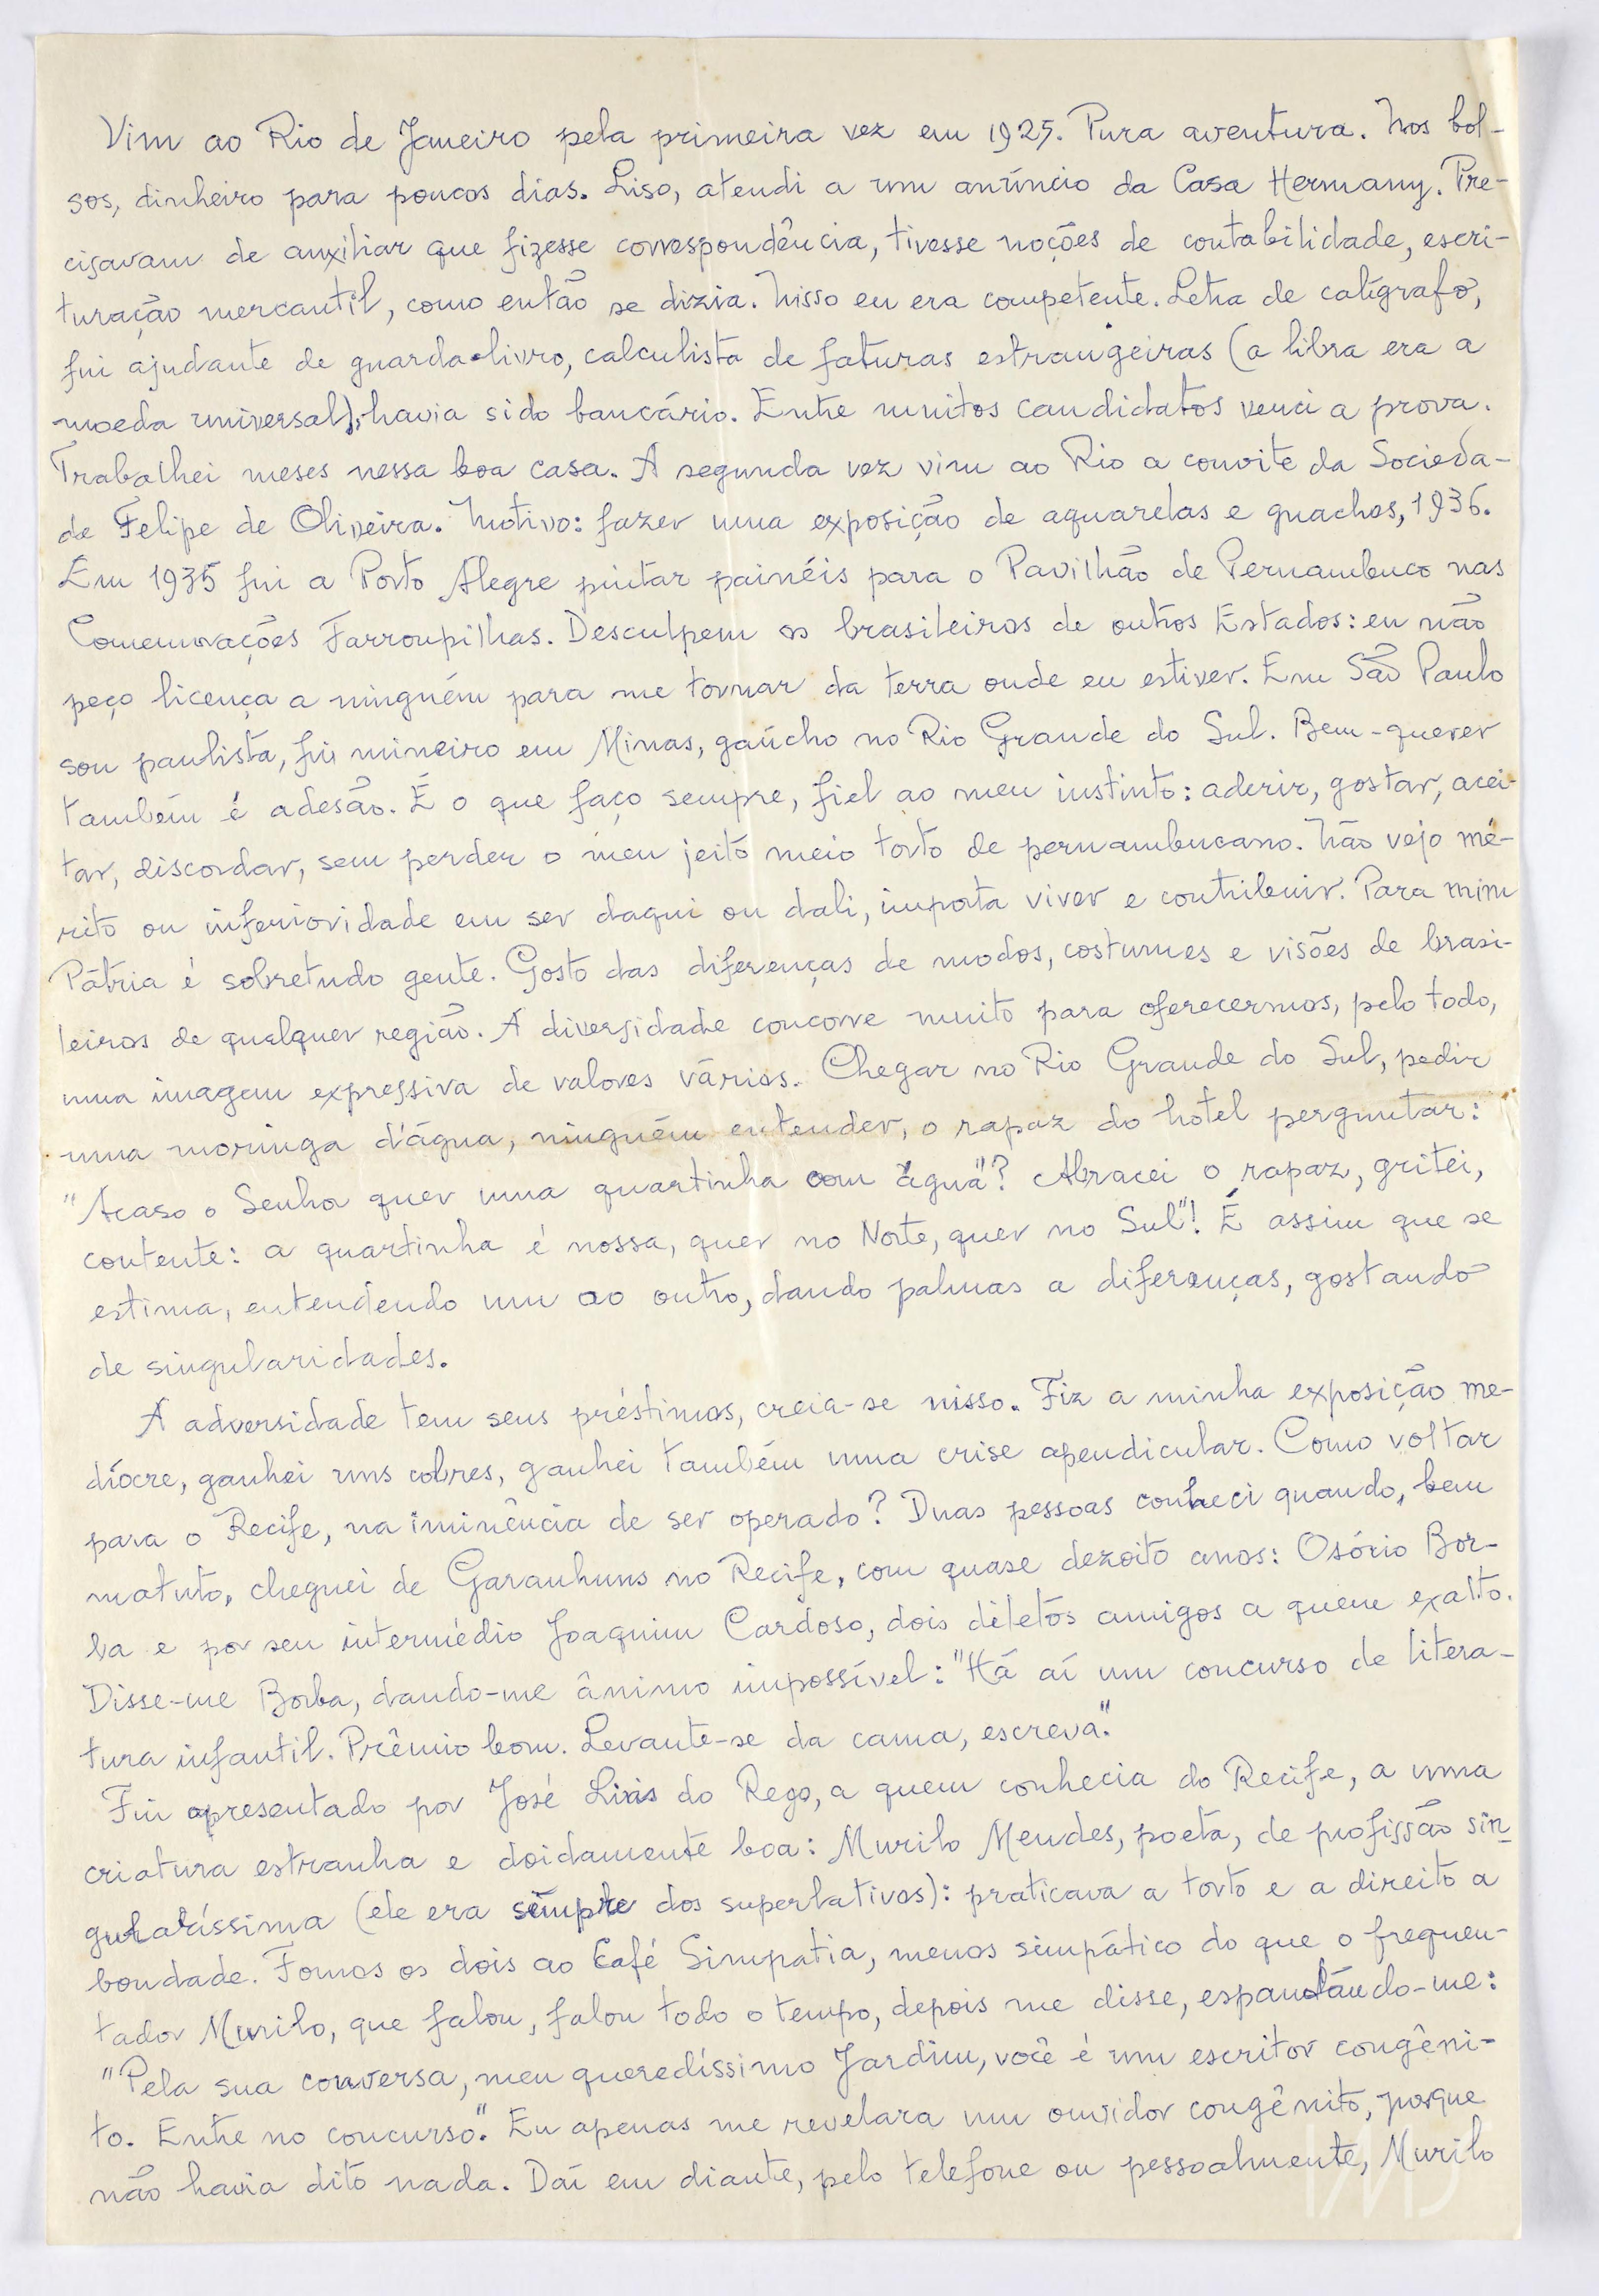 Vim ao Rio de Janeiro pela primeira vez em 1925. Pura aventura. Nos bol-
sos, dinheiro para poucos dias. Liso, atendi a um anúncio da Casa Hermany. Pre-
cisavam de auxiliar que fizesse correspondência, tivesse noções de contabilidade, escri-
turação mercantil, como então se dizia. Nisso eu era competente. Letra de calígrafo,
fui ajudante de guarda-livro, calculista de faturas estrangeiras (a libra era a
moeda universal), havia sido bancário. Entre muitos candidatos venci a prova.
Trabalhei meses nessa boa casa. A segunda vez vim ao Rio a convite da Socieda-
de Felipe de Oliveira. Motivo: fazer uma exposição de aquarelas e guaches, 1936.
Em 1935 fui a Porto Alegre pintar painéis para o Pavilhão de Pernambuco nas
Comemorações Farroupilhas. Desculpem os brasileiros de outros Estados: eu não
peço licença a ninguém para me tornar da terra onde eu estiver. Em São Paulo
sou paulista, fui mineiro em Minas, gaúcho no Rio Grande do Sul. Bem-querer
também é adesão. É o que faço sempre, fiel ao meu instinto: aderir, gostar, acei-
tar, discordar, sem perder o meu jeito meio torto de pernambucano. Não vejo mé-
rito ou inferioridade em ser daqui ou dali, importa viver e contribuir. Para mim
Pátria é sobretudo gente. Gosto das diferenças de modos, costumes e visões de brasi-
leiros de qualquer região. A diversidade concorre muito para oferecermos, pelo todo,
uma imagem expressiva de valores vários. Chegar no Rio Grande do Sul, pedir
uma moringa d'água, ninguém entender, o rapaz do hotel perguntar:
"Acaso o Senhor quer uma quartinha com água"? Abracei o rapaz, gritei,
contente: a quartinha é nossa, quer no Norte, quer no Sul"! É assim que se
estima, entendendo um ao outro, dando palmas a diferenças, gostando
de singularidades.
A adversidade tem seus préstimos, creia-se nisso. Fiz a minha exposição me-
díocre, ganhei uns cobres, ganhei também uma crise apendicular. Como voltar
para o Recife, na iminência de ser operado? Duas pessoas conheci quando, bem
matuto, cheguei de Garanhuns no Recife, com quase dezoito anos: Osório Bor-
ba e por seu intermédio Joaquim Cardoso, dois diletos amigos a quem exalto.
Disse-me Borba, dando-me ânimo impossível: "Há aí um concurso de litera-
tura infantil. Prêmio bom. Levante-se da cama, escreva".
Fui apresentado por José Lins do Rego, a quem conhecia do Recife, a uma
criatura estranha e doidamente boa: Murilo Mendes, poeta, de profissão sin-
gularíssima (ele era sempre dos superlativos): praticava a torto e a direito a
bondade. Fomos os dois ao Café Simpatia, menos simpático do que o frequen-
tador Murilo, que falou, falou todo o tempo, depois me disse, espantando-me:
"Pela sua conversa, meu queredíssimo Jardim, você é um escritor congêni-
to. Entre no concurso". Eu apenas me revelara um ouvidor congênito, porque
não havia dito nada. Daí em diante, pelo telefone ou pessoalmente, Murilo
IMS